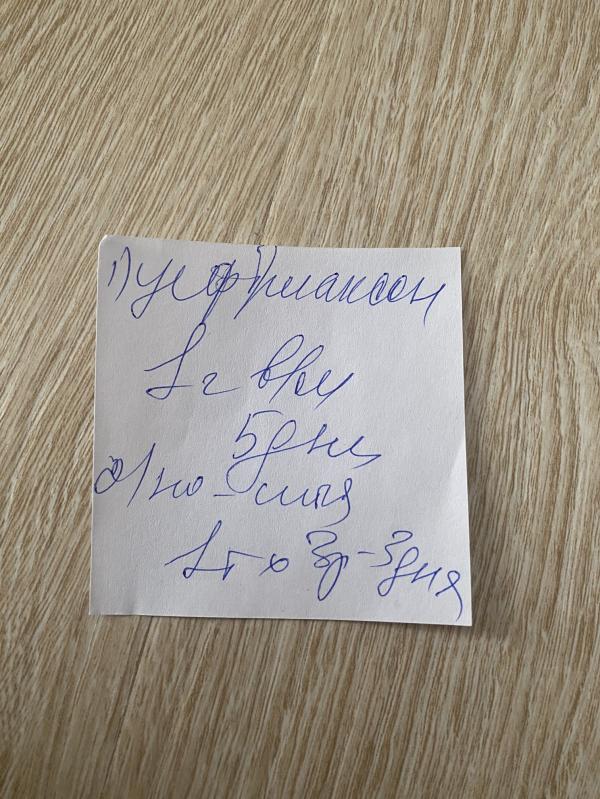 1) Цефтриаксон
1 г в/м
5 дней
2) но-шпа
1т x 3р - 3 дня